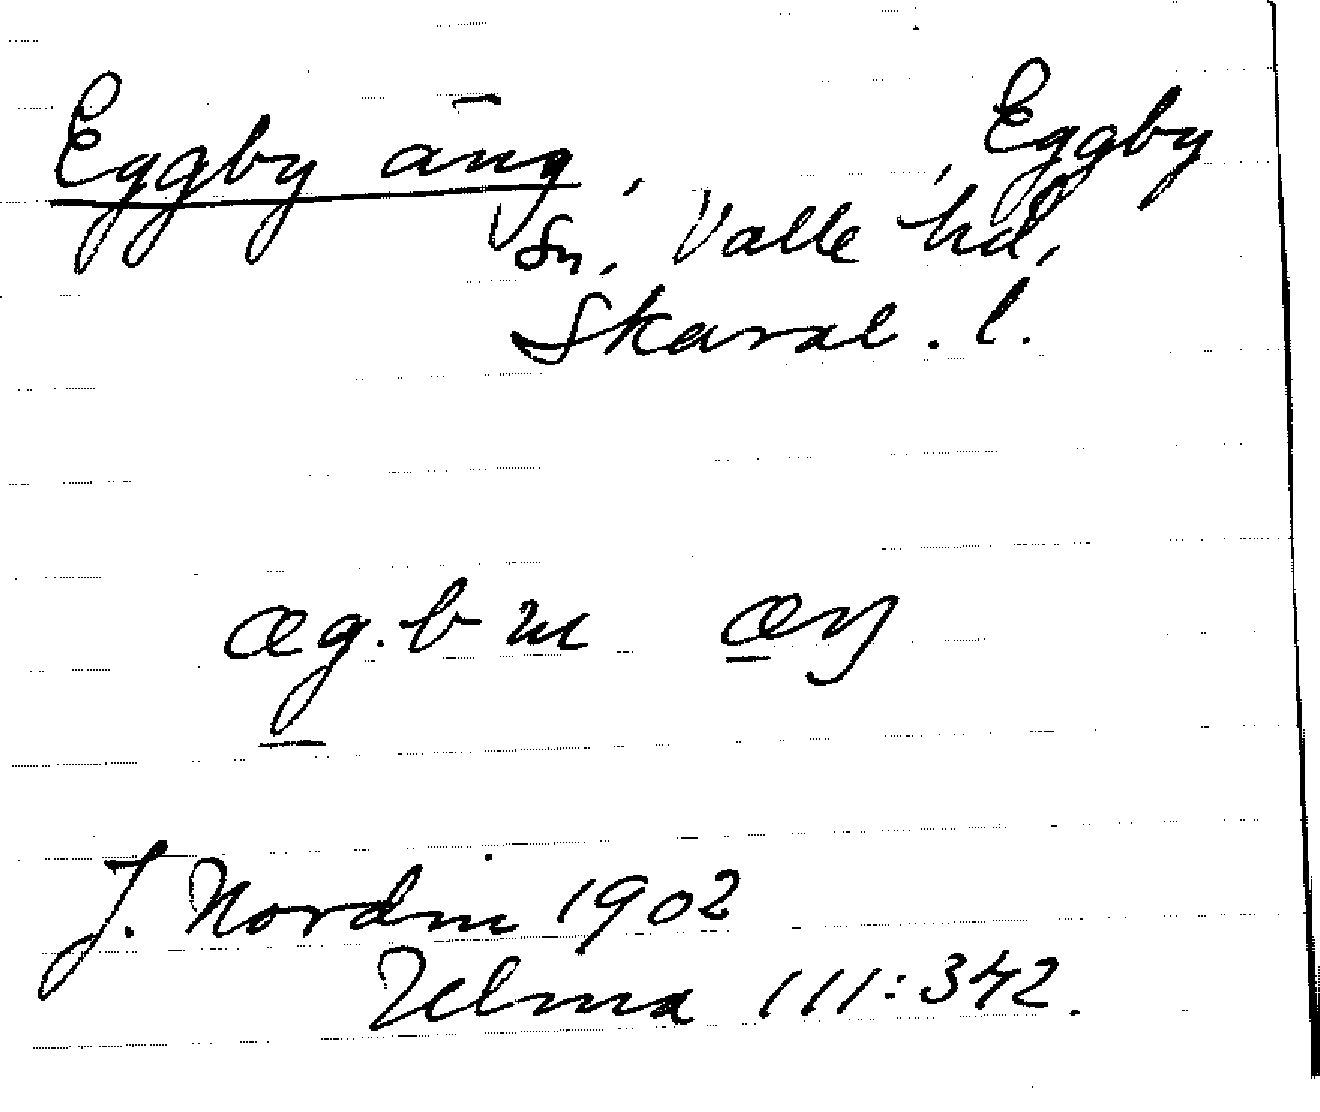 Eggby äng, , Eggby
Sn, Valle hd,
Skarab. l.
J. Nordin 1902
Ulma 111:342.